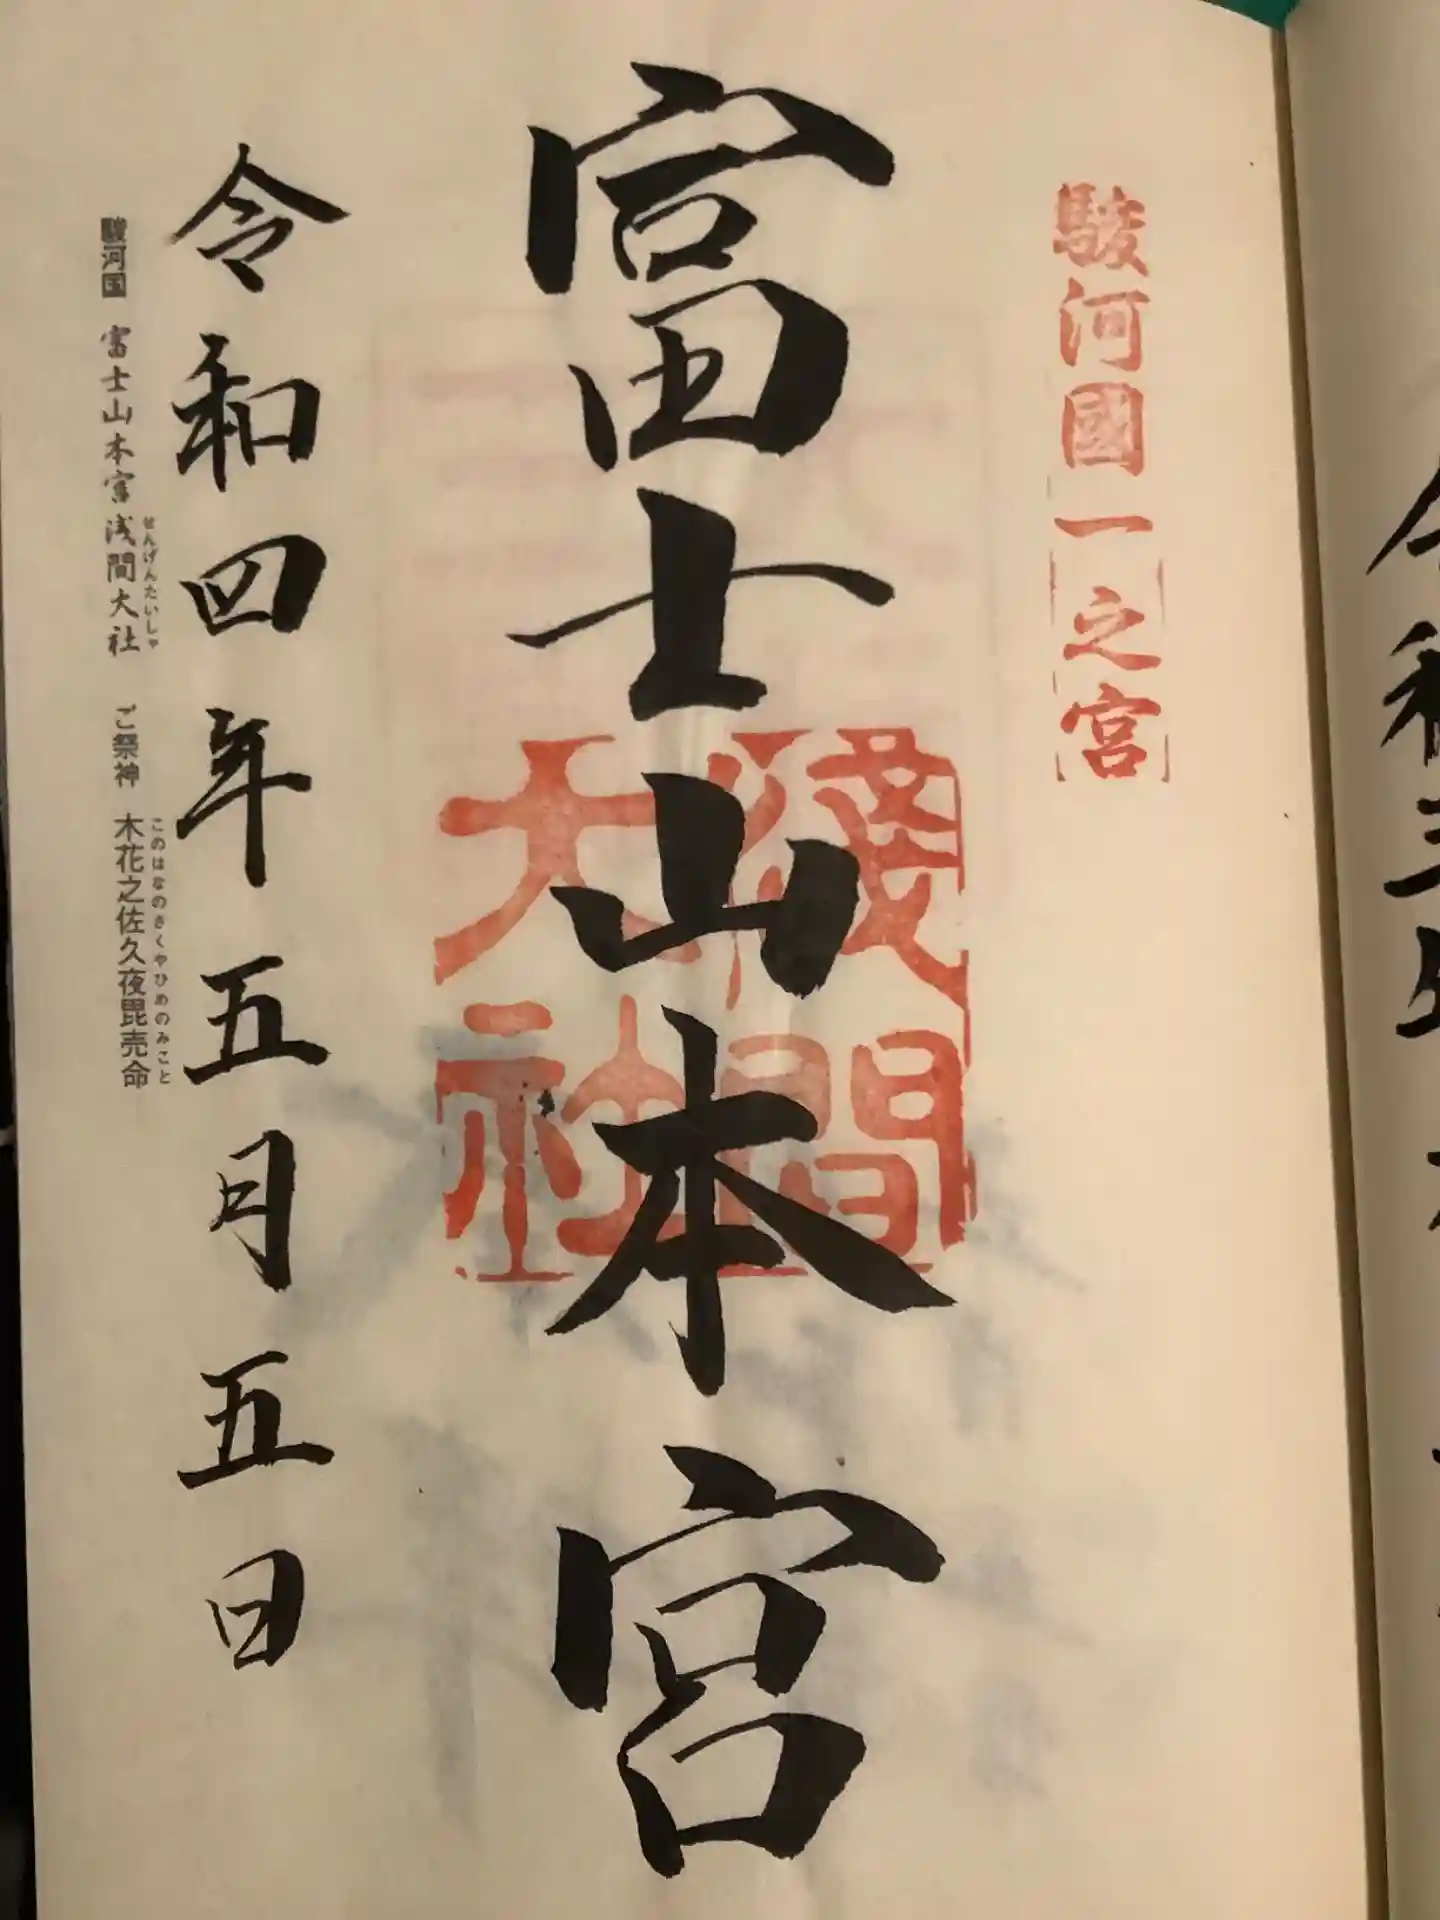 駿河國一之宮
富士山本宮
淺間大社
令和四年五月五日
駿河国 富士山本宮浅間大社 ご祭神 木花之佐久夜毘売命
せんげんたいしゃ
このはなのさくやひめのみこと